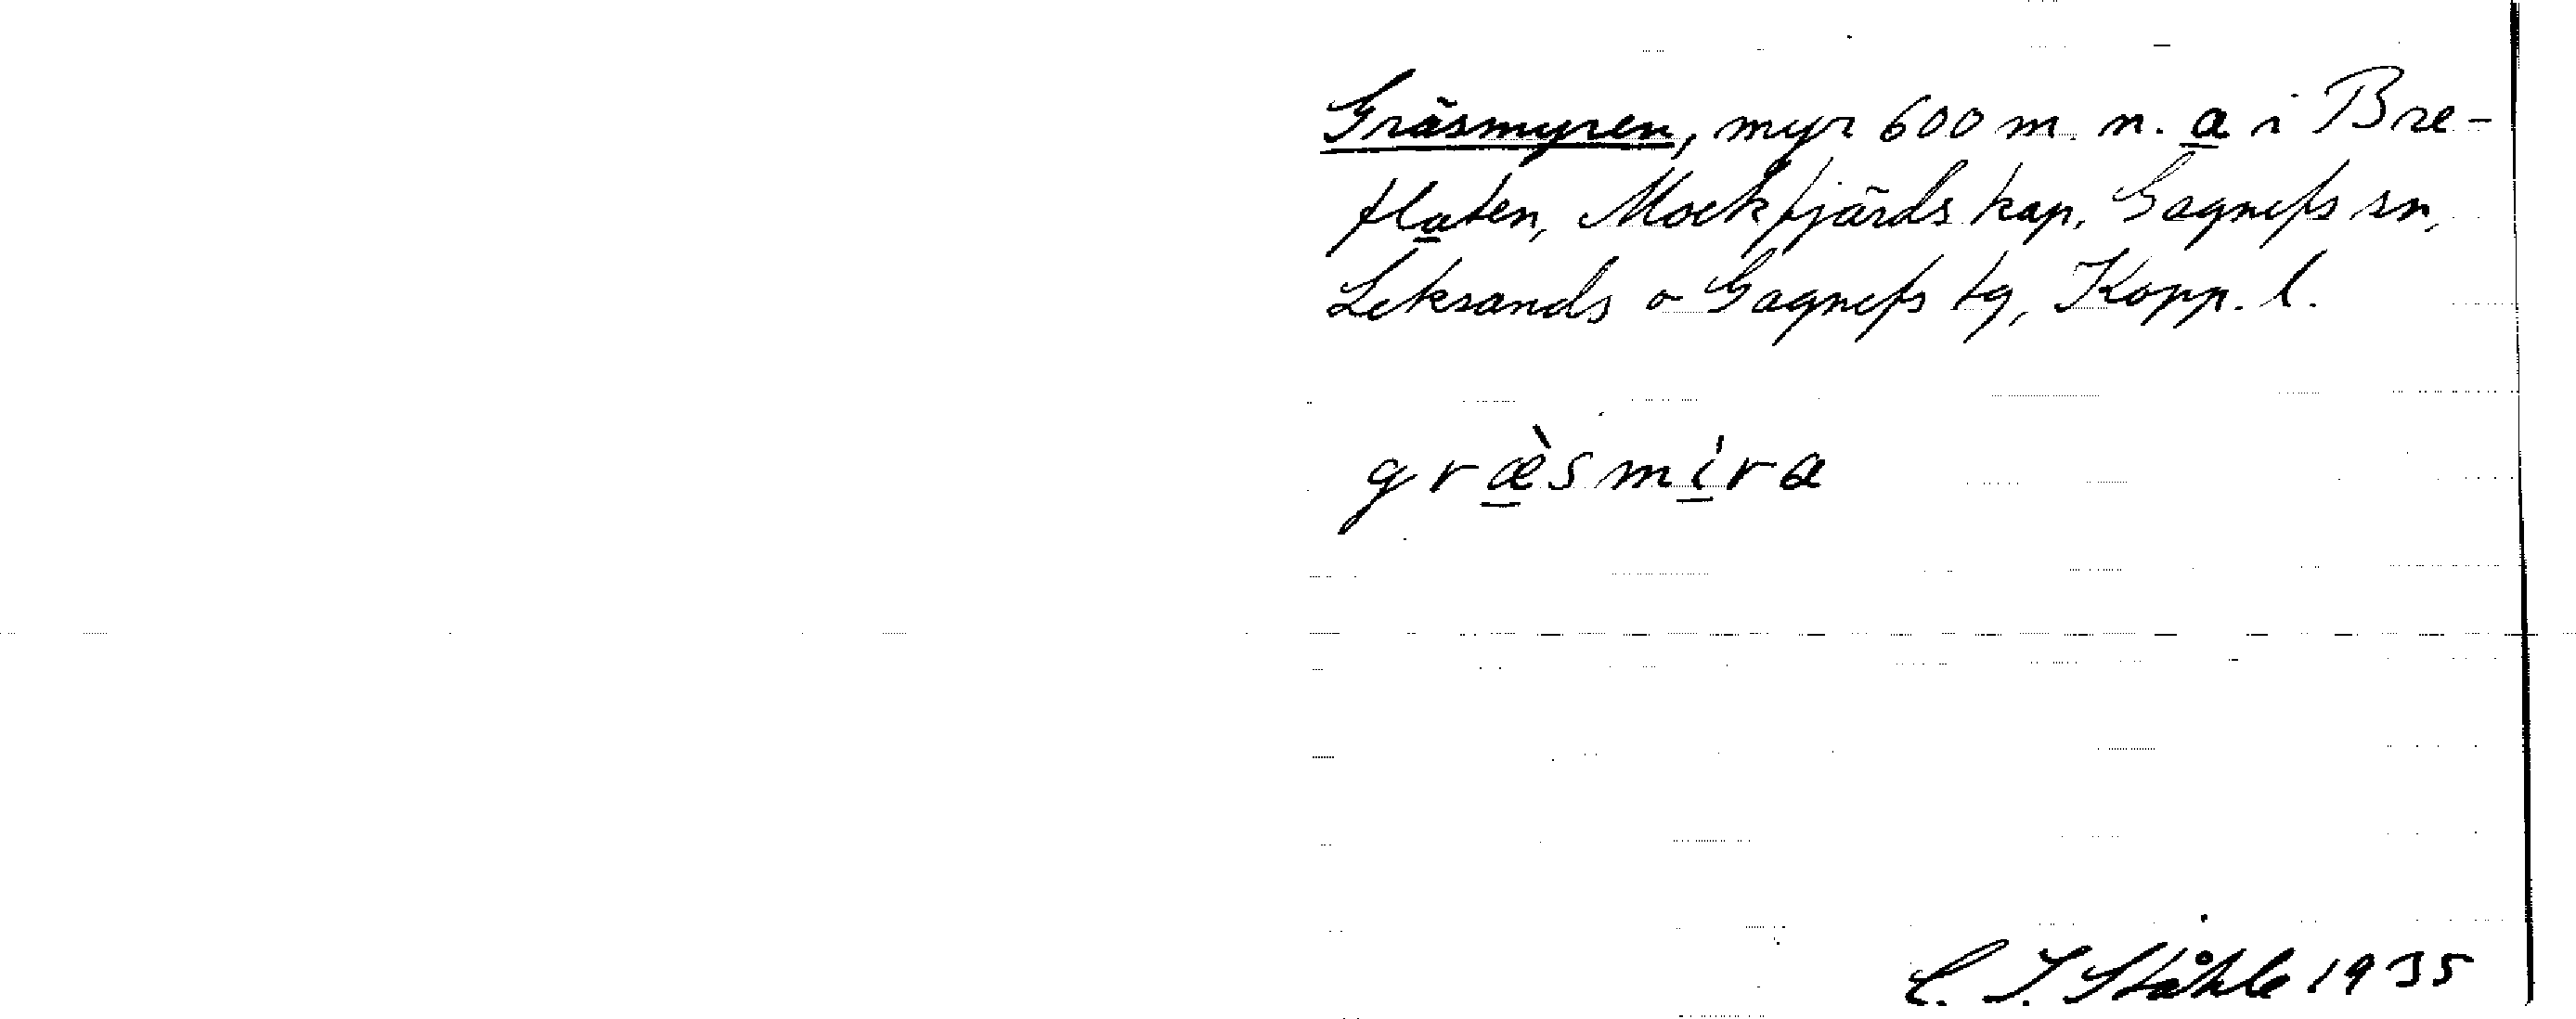 Gräsmyren, myr 600 m. n. a i Bre-
flaten, Mockfjärds kap, Gagnefs sn,
Leksands o Gagnefs tg, Kopp. l.
græ̀smi̍ra
C. I. Ståhle 1935